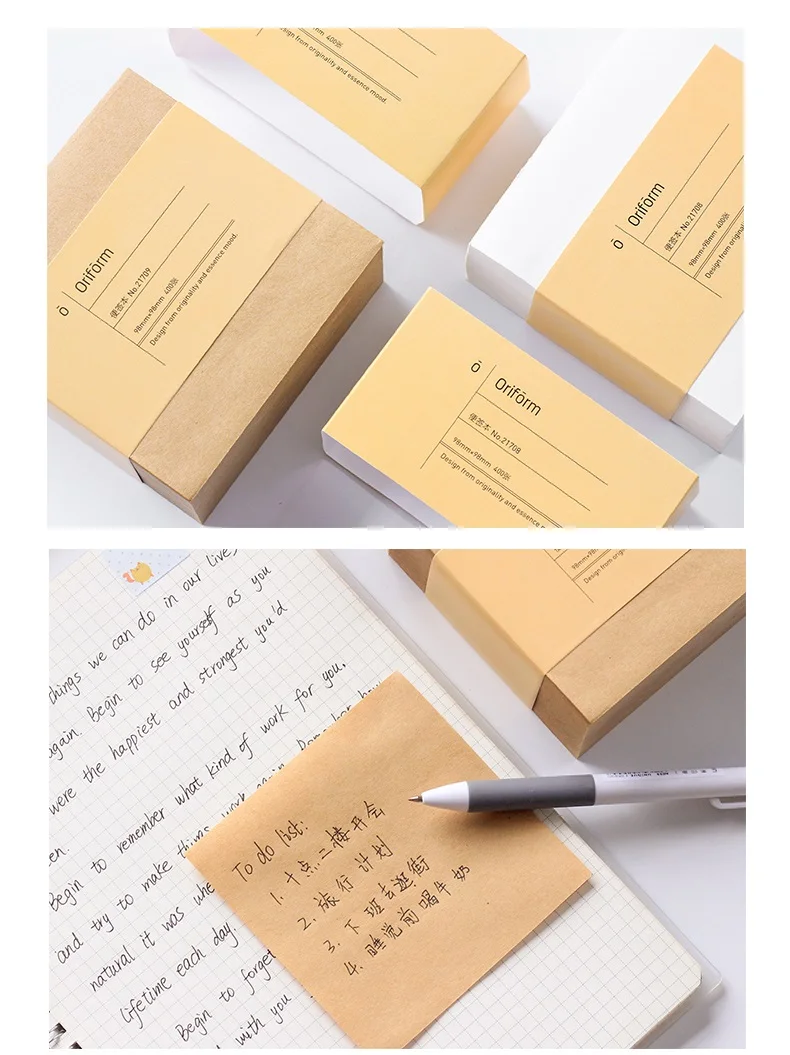 Design from originality and essence mood.
Ō
Oriform
便签本 No.21709
98mm×98mm 400张
Design from originality and essence mood.
Ō
Oriform
便签本 No.21708
98mm×98mm 400张
Design from originality
Ō
Oriform
便签本 No.21708
98mm×98mm 400张
Design from originality and essence mood.
98mm×98mm
Design from originality and
things we can do in our live
again. Begin to see yourself as you
were the happiest and strongest you'd
Begin to remember what kind of work for you.
and try to make things work again. Remember how
natural it was whe
lifetime each day.
Begin to forget
with you
To do list:
1. 十点二楼开会
2. 旅行计划
3. 下班去逛街
4. 睡觉前喝牛奶